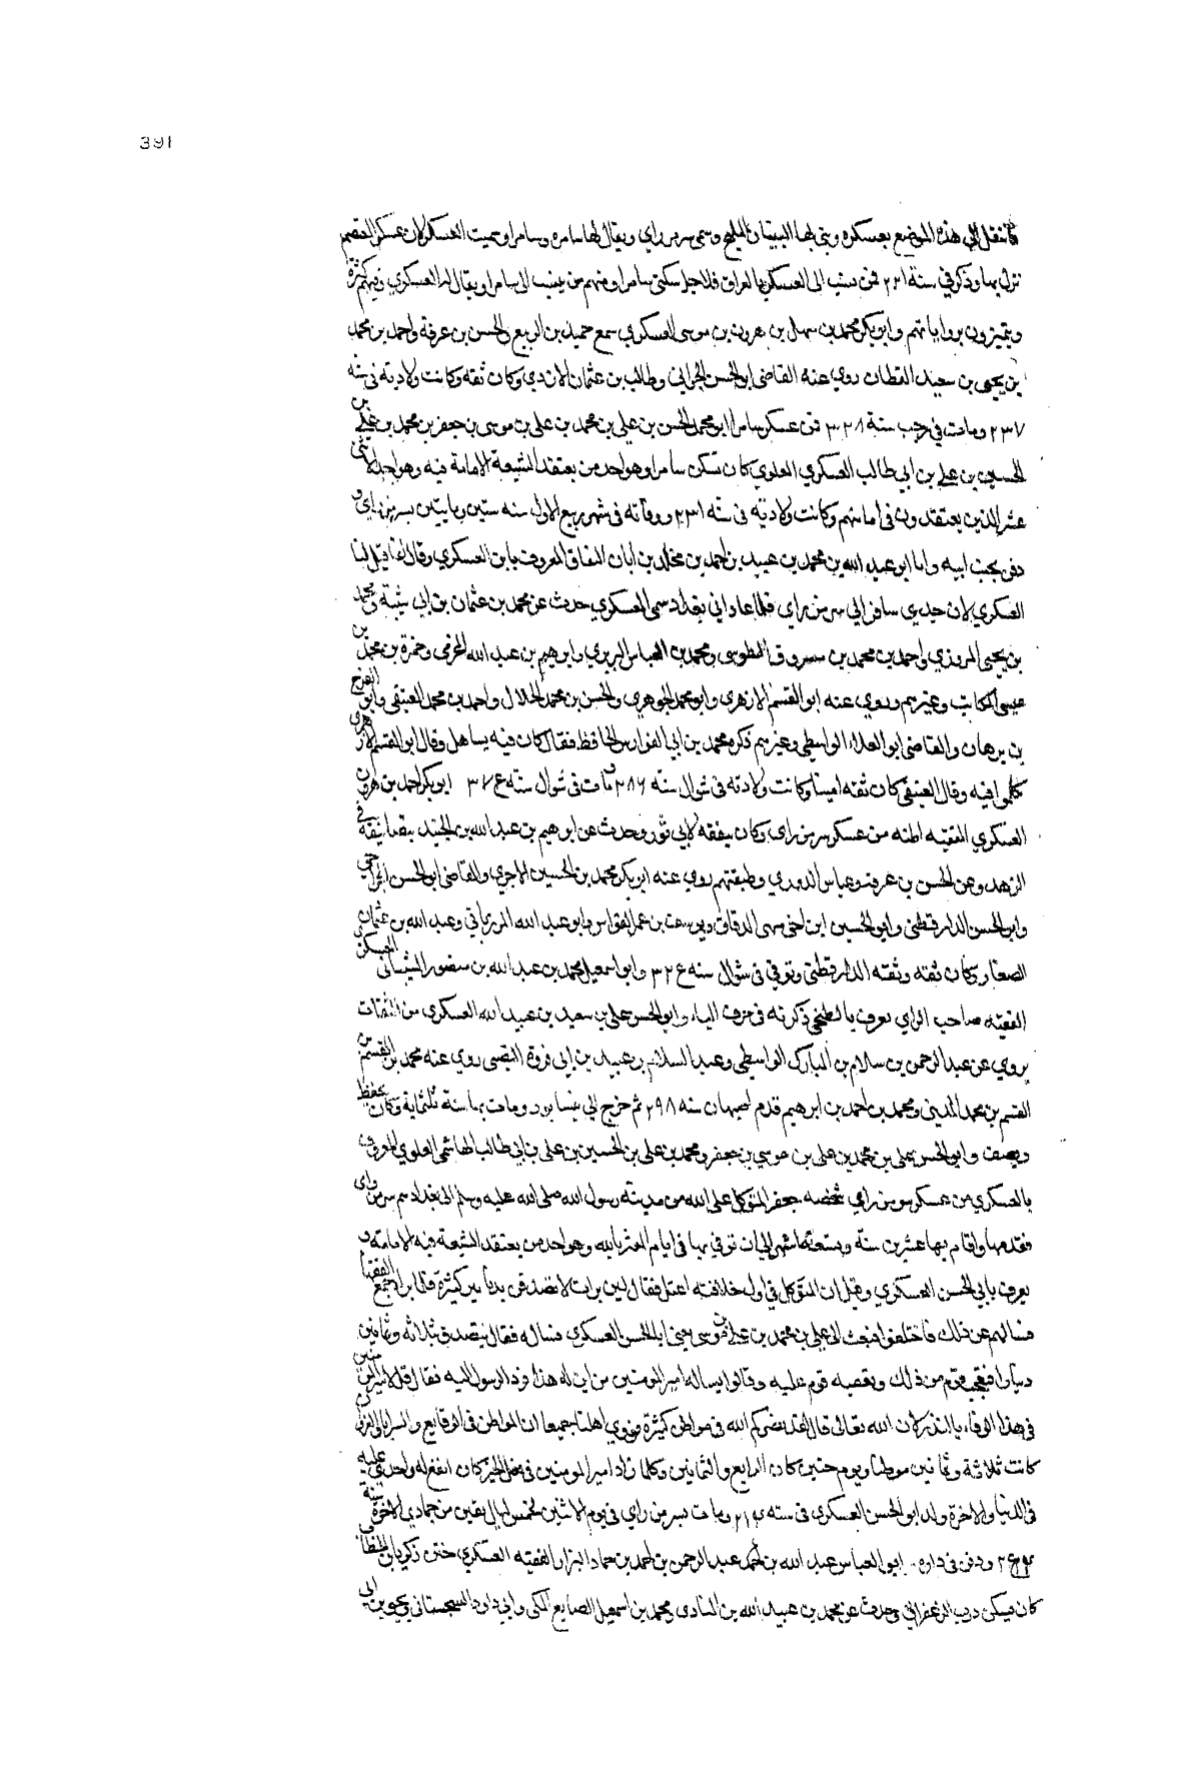 391
فانتقل الى هذه الموضع بعسكره وبنى بها البنيان المليح وسمى سر من راي ويقال لها سامره وسامرا وسميت العسكر لان عسكر المعتصم
نزل بها وذكر في سنة ٢٢١ فمن نسب الى العسكر بالعراق فلاجل سكنى سامرا ومنهم من ينسب الى سامرا ويقال له العسكري وفيهم كثرة
ويتميزون برواياتهم وابو بكر محمد بن سهل بن هرون بن موسى العسكري سمع حميد بن الربيع والحسن بن عرفة واحمد بن محمد
بن يحيى بن سعيد القطان روي عنه القاضى ابو الحسن الجراحي وطالب بن عثمان الازدي وكان ثقه وكانت ولادته فى سنه
٢٣٧ ومات في رجب سنة ٣٢٨ من عسكر سامرا ابو محمد الحسن بن علي بن محمد بن على بن موسى بن جعفر بن محمد بن علي بن
الحسين بن علي بن ابي طالب العسكري العلوي كان سكن سامرا وهو احد من يعتقد الشيعة الامامة فيه وهو احد الاثنى
عشر الذين يعتقدون فى امامتهم وكانت ولادته فى سنه ٢٣١ ووفاته فى شهر ربيع الاول سنه ستين ومايتين بسر من راي و
دفن بجنب ابيه واما ابو عبد الله بن محمد بن عبيد بن احمد بن مخلد بن ابان الدقاق المعروف بابن العسكري وقال انما قيل لنا
العسكري لان جدي سافر الى سر من راي فلما عاد الى بغداد سمى العسكري حدث عن محمد بن عثمان بن ابي شيبة ومحمد
بن يحيى المروزي واحمد بن محمد بن مسروق الطوسى ومحمد بن العباس اليزيدي وابرهيم بن عبد الله المخرمى وحمزة بن محمد بن
عيسى الكاتب وغيرهم وروي عنه ابو القسم الازهرى وابو محمد الجوهري والحسن بن محمد الخلال واحمد بن محمد العتيقى وابو الفرج
بن برهان والقاضى ابو العلاء الواسطي وغيرهم ذكره محمد بن ابي الفوارس الحافظ فقال كان فيه تساهل وقال ابو القسم الازهرى
تكلموا فيه وقال العتيقى كان ثقه امينا وكانت ولادته فى شوال سنه ٢٨٦ ومات فى شوال سنه ٣٧٤ ابو بكر احمد بن هرون
العسكري الفقيه اظنه من عسكر سر من راى وكان يتفقه لابي ثور وحدث عن ابرهيم بن عبد الله بن الجنيد بتصانيفه في
الزهد وعن الحسن بن عرفة وعباس الدوري وطبقتهم روي عنه ابو بكر محمد بن الحسين الاجري والقاضى ابو الحسن الجراحي
وابو الحسن الدارقطنى وابو الحسين ابن اخي ميمى الدقاق ويوسف بن عمر القواس وابو عبد الله المرزباني وعبد الله بن عثمان
الصفار وكان ثقه وثقه الدارقطنى وتوفي فى شوال سنه ٣٢٤ وابو اسمعيل محمد بن عبد الله بن منصور الشيبانى العسكرى
الفقيه صاحب الراي يعرف بالبطيخي ذكرته فى حرف الباء وابو الحسن على بن سعيد بن عبيد الله العسكرى من الثقات
يروي عن عبد الرحمن بن سلام بن المبارك الواسطي وعبد السلام بن عبيد بن ابي فروة النصيبى روي عنه محمد بن القسم بن
القسم بن محمد المديني ومحمد بن احمد بن ابرهيم قدم اصبهان سنه ٢٩٨ ثم خرج الي نيسابور ومات بها سنة ثلثماية وكان يحفظ
ويصنف وابو الحسن على بن محمد بن على بن موسى بن جعفر ومحمد بن على بن الحسين بن على بن ابي طالب الهاشمى العلوي المعروف
بالعسكري من عسكر سر من راي اشخصه جعفر المتوكل على الله من مدينه رسول الله صلى الله عليه وسلم الى بغداد ثم سر من راي
فقدمها واقام بها عشرين سنة وتسعة اشهر الى ان توفي بها فى ايام المعتز بالله وهو احد من يعتقد الشيعة فيه الامامة و
يعرف بابي الحسن العسكري وقيل ان المتوكل في اول خلافته اعتل فقال لين برئت لاتصدقن بدنانير كثيرة فلما برا جمع الفقها
فسالهم عن ذلك فاختلفوا فبعث الى علي بن محمد بن علي بن موسى يعنى ابا الحسن العسكري فساله فقال يتصدق بثلاثة وثمانين
دينارا فعجب قوم من ذلك وتعصب قوم عليه وقالوا يساله امير المومنين من اين له هذا فرد الرسول اليه فقال قل لامير المومنين
فى هذا الوفاء بالنذر لان الله تعالى قال لقد نصركم الله فى مواطن كثيرة فروي اهلنا جميعا ان المواطن فى الوقايع والسرايا والغزوات
كانت ثلاثة وثمانين موطنا ويوم حنين كان الرابع والثمانين وكلما زاد امير المومنين فى فعل الخير كان انفع له واجدي عليه
فى الدنيا والاخرة ولد ابو الحسن العسكرى فى سنه ٢١٤ ومات بسر من راي في يوم الاثنين لخمس ليال بقين من جمادي الاخرة سنة
٢٥٤ ودفن فى داره. ابو العباس عبد الله بن احمد عبد الرحمن بن احمد بن حماد البزار الفقيه العسكري ختن زكريا بن الخطاب
كان يسكن درب الزعفراني وحدث عن محمد بن عبيد الله بن المنادى ومحمد بن اسمعيل الصايغ المكى وابي داود السجستاني ويحيى بن ابي